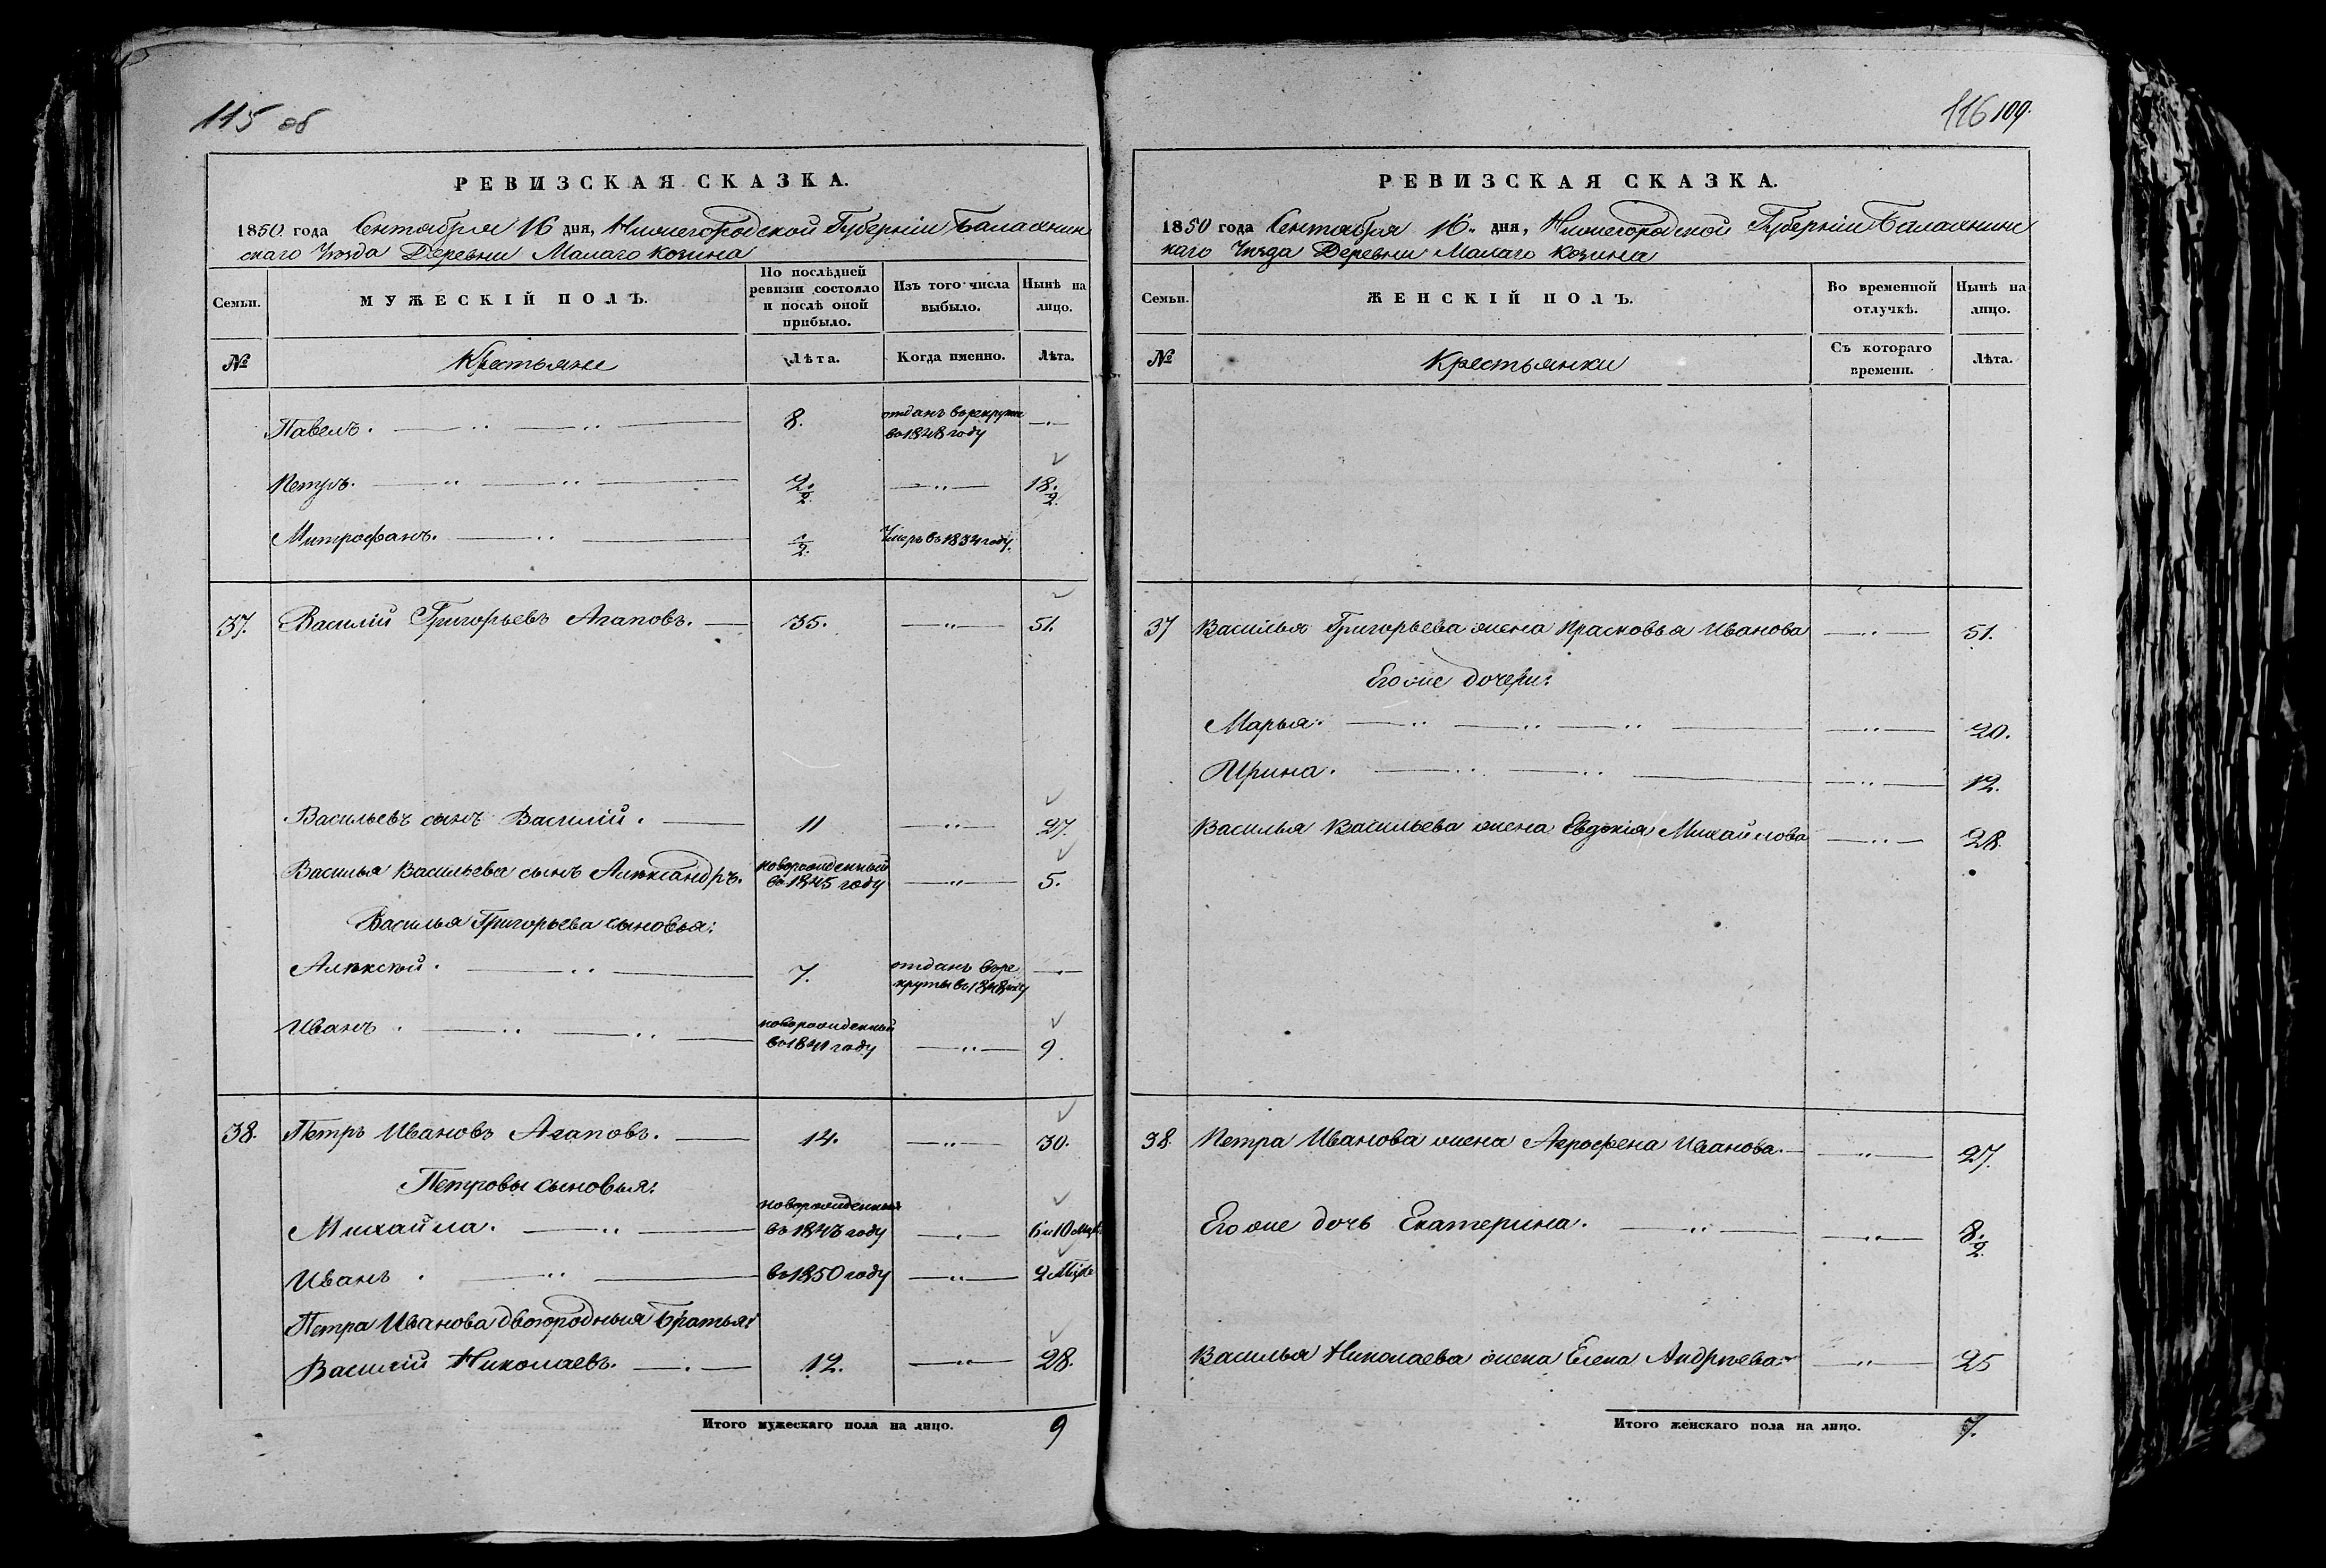 115 об
РЕВИЗСКАЯ СКАЗКА.
1850 года Сентября 16 дня, Нижегородской Губерніи Балахнин
скаго Уѣзда Деревни Малаго Козина
Семьи.
МУЖЕСКІЙ ПОЛЪ.
По послѣдней
ревизіи состояло
и послѣ оной
прибыло.
Изъ того числа
выбыло.
Нынѣ на
лицо.
№ Крестьяне Лѣта. Когда именно. Лѣта.
Павелъ. 8. отданъ въ рекруты
въ 1848 году
Петръ. 2. 1/2 18. 1/2
Митрофанъ. 1/2 Умеръ въ 1834 году.
37. Василій Григорьевъ Агаповъ. 35. 51.
Васильевъ сынъ Василій. 11 27.
Василья Васильева сынъ Александръ. новорожденный
въ 1845 году 5.
Василья Григорьева сыновья:
Алексѣй. 7. отданъ въ ре
круты въ 1848 году
Иванъ. новорожденный
въ 1841 году 9.
38. Петръ Ивановъ Агаповъ. 14. 30.
Петровы сыновья:
Михайла. новорожденный
въ 1843 году 6 и 10 Мцѣ
Иванъ. въ 1850 году 2 Мцѣ
Петра Иванова двоюродныя братья:
Василій Николаевъ. 12. 28.
Итого мужескаго пола на лицо. 9
116 109.
РЕВИЗСКАЯ СКАЗКА.
1850 года Сентября 16. дня, Нижегородской Губерніи Балахнинс
каго Уѣзда Деревни Малаго Козина
Семьи.
ЖЕНСКІЙ ПОЛЪ.
Во временной
отлучкѣ.
Нынѣ на
лицо.
№ Крестьянки Съ котораго
времени. Лѣта.
37 Василья Григорьева жена Прасковья Иванова 51.
Его же дочери:
Марья. 20.
Ирина. 12.
Василья Васильева жена Евдокія Михайлова 28.
38 Петра Иванова жена Агрофена Иванова. 27.
Его же дочь Екатерина. 8. 1/2
Василья Николаева жена Елена Андрѣева 25
Итого женскаго пола на лицо. 7.